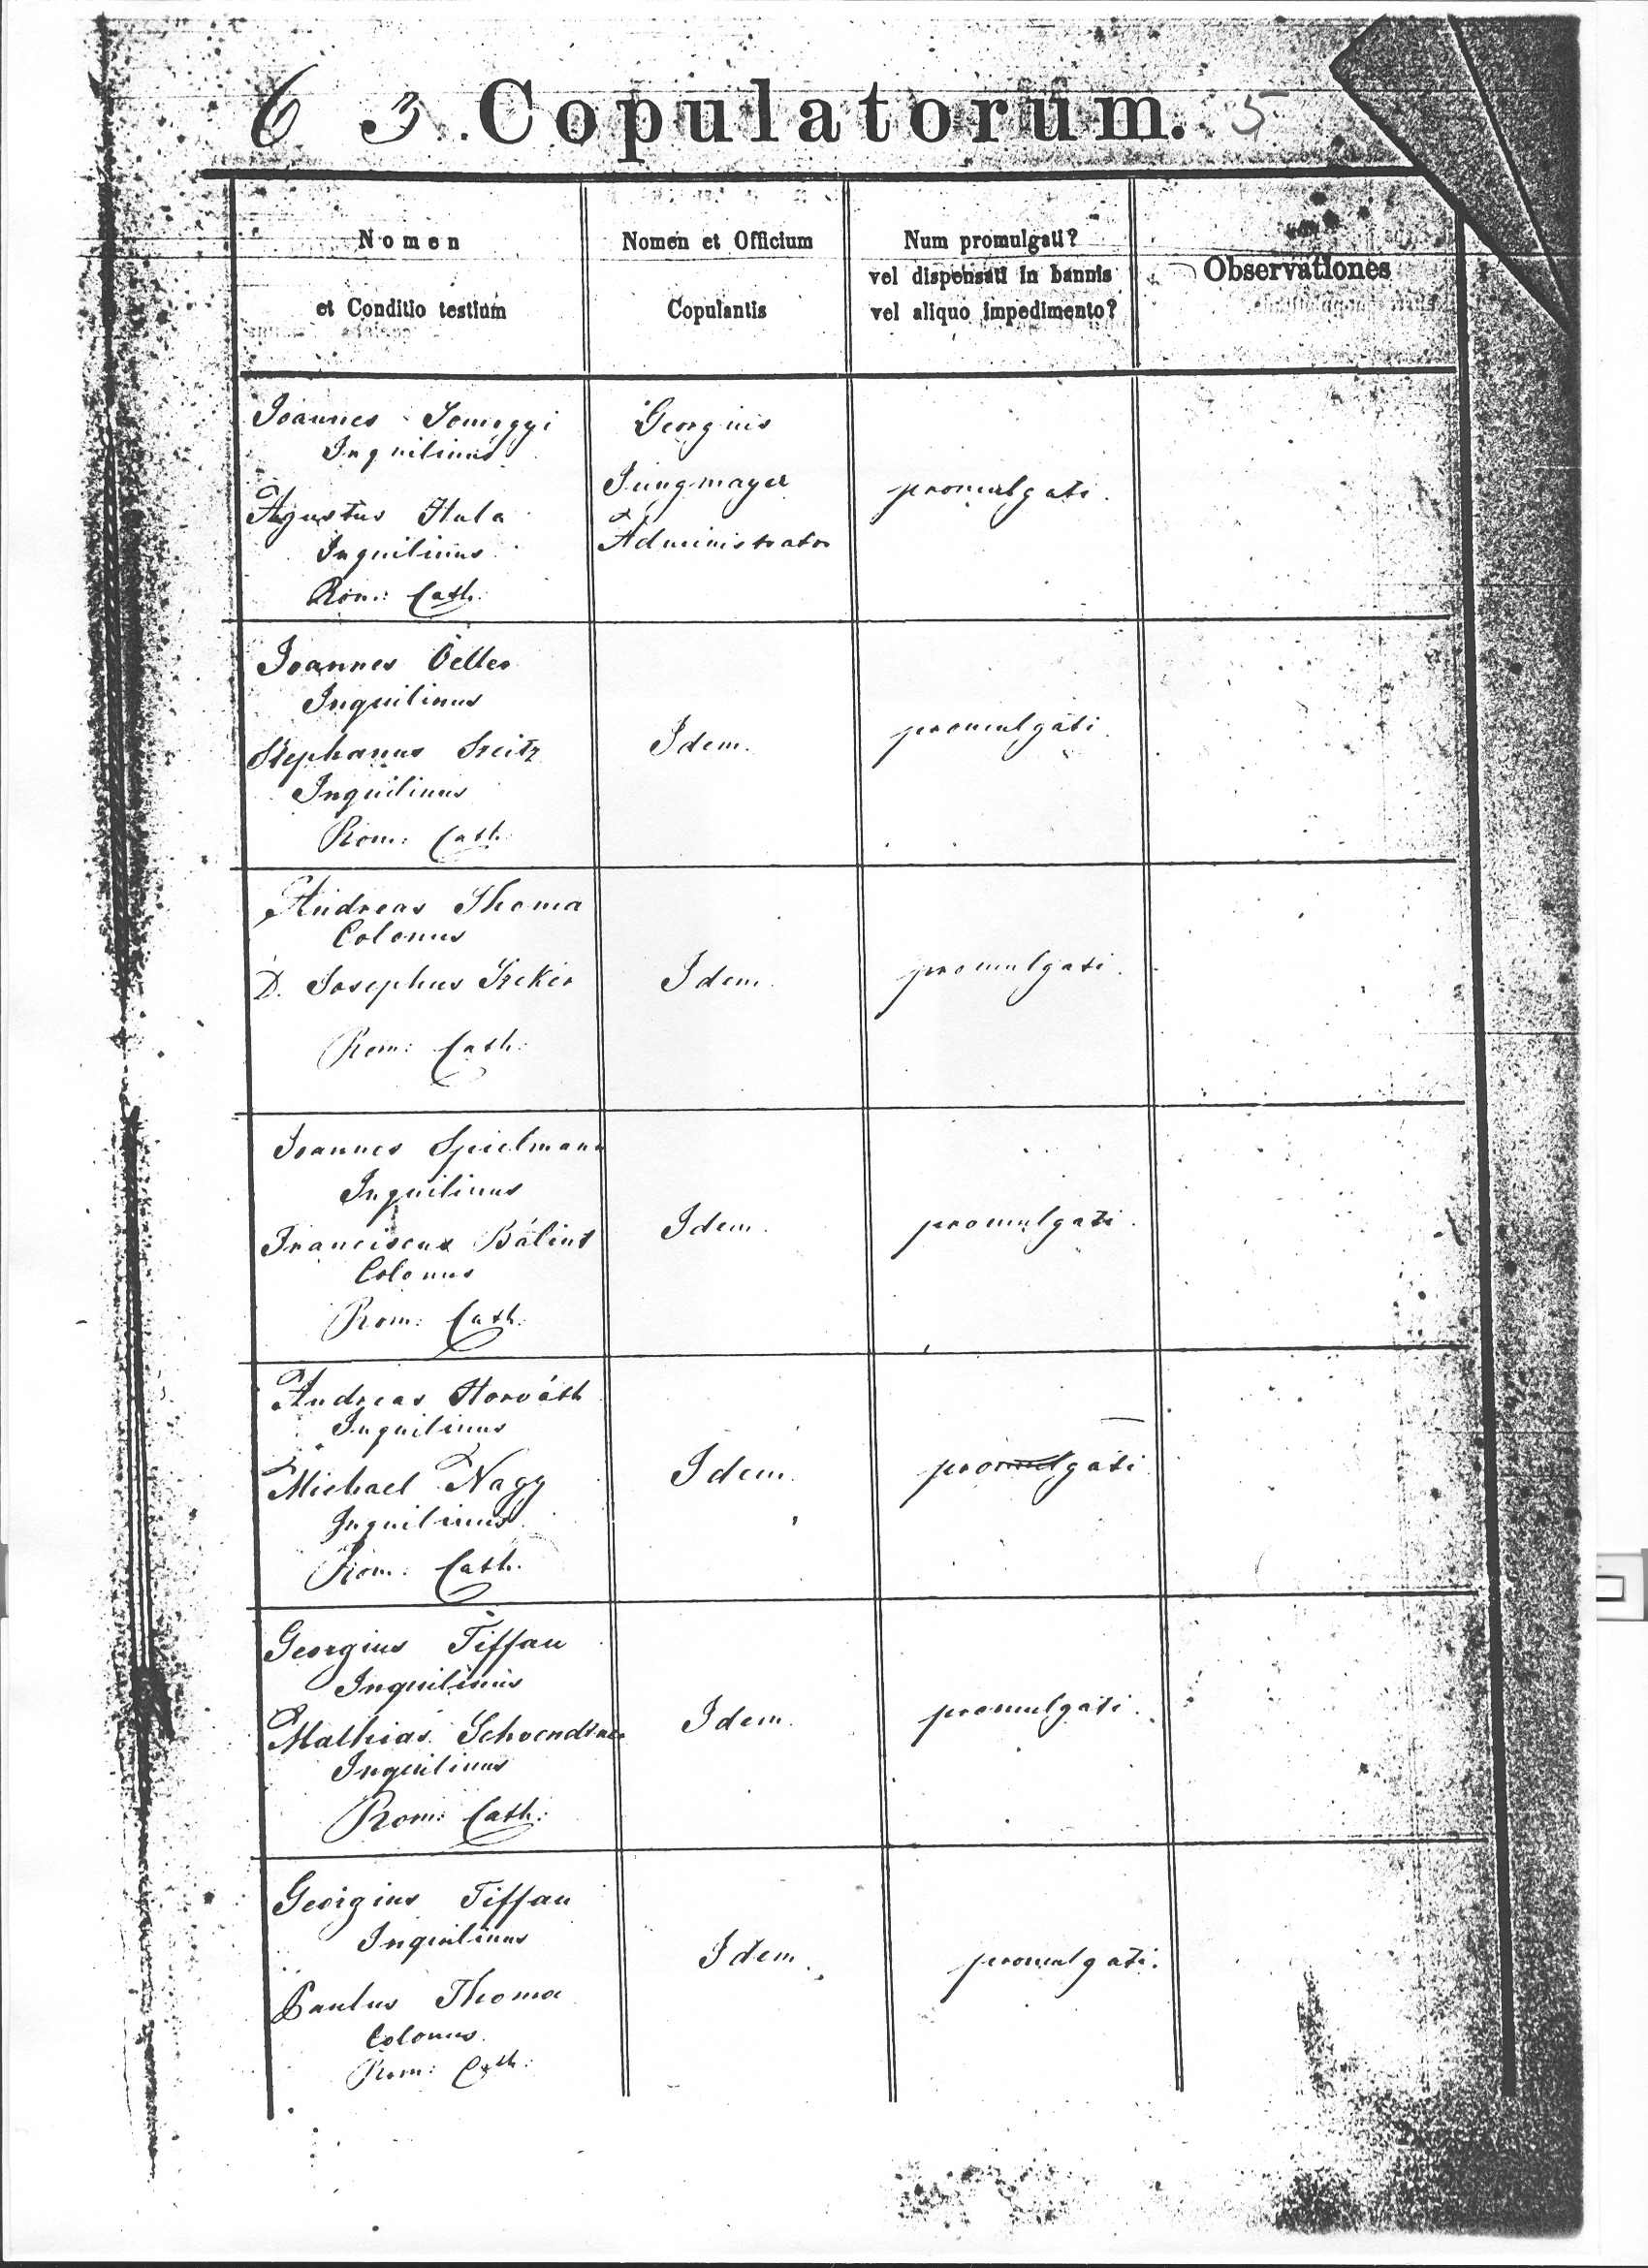 6 3. Copulatorum. 5
Nomen
et Conditio testium
Nomen et Officium
Copulantis
Num promulgati?
vel dispensati in bannis
vel aliquo impedimento?
Observationes
Joannes Somogyi
Inquilinus
Agustus Hula
Inquilinus
Rom: Cath:
Georgius
Jungmayer
Administrator
promulgati.
Joannes Veller
Inquilinus
Stephanus Szeitz
Inquilinus
Rom: Cath:
Idem.
promulgati.
Andreas Thoma
Colonus
D. Josephus Szekér
Rom: Cath:
Idem.
promulgati.
Joannes Spielmann
Inquilinus
Franciscus Bálint
Colonus
Rom: Cath:
Idem.
promulgati.
Andreas Horváth
Inquilinus
Michael Nagy
Inquilinus
Rom: Cath:
Idem.
promulgati.
Georgius Tiffan
Inquilinus
Mathias
Inquilinus
Rom: Cath:
Idem.
promulgati.
Georgius Tiffan
Inquilinus
Paulus Thoma
Colonus.
Rom: Cath:
Idem.
promulgati.